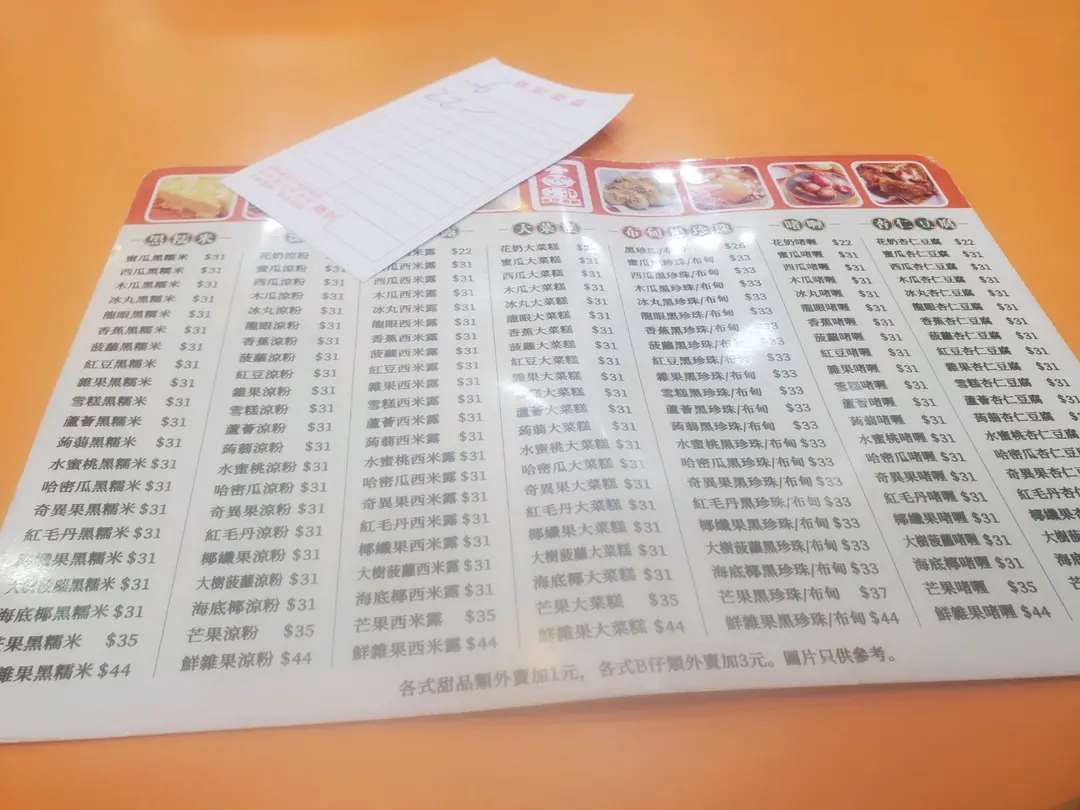 黑糯米
蜜瓜黑糯米 $31
西瓜黑糯米 $31
木瓜黑糯米 $31
冰丸黑糯米 $31
龍眼黑糯米 $31
香蕉黑糯米 $31
菠蘿黑糯米 $31
紅豆黑糯米 $31
雜果黑糯米 $31
雪糕黑糯米 $31
蘆薈黑糯米 $31
蒟蒻黑糯米 $31
水蜜桃黑糯米 $31
哈密瓜黑糯米 $31
奇異果黑糯米 $31
紅毛丹黑糯米 $31
椰纖果黑糯米 $31
大樹菠蘿黑糯米 $31
海底椰黑糯米 $31
芒果黑糯米 $35
雜果黑糯米 $44
花奶涼粉
蜜瓜涼粉 $31
西瓜涼粉 $31
木瓜涼粉 $31
冰丸涼粉 $31
龍眼涼粉 $31
香蕉涼粉 $31
菠蘿涼粉 $31
紅豆涼粉 $31
雜果涼粉 $31
雪糕涼粉 $31
蘆薈涼粉 $31
蒟蒻涼粉 $31
水蜜桃涼粉 $31
哈密瓜涼粉 $31
奇異果涼粉 $31
紅毛丹涼粉 $31
椰纖果涼粉 $31
大樹菠蘿涼粉 $31
海底椰涼粉 $31
芒果涼粉 $35
鮮雜果涼粉 $44
西米露 $22
瓜西米露 $31
西瓜西米露 $31
木瓜西米露 $31
冰丸西米露 $31
龍眼西米露 $31
香蕉西米露 $31
菠蘿西米露 $31
紅豆西米露 $31
雜果西米露 $31
雪糕西米露 $31
蘆薈西米露 $31
蒟蒻西米露 $31
水蜜桃西米露 $31
哈密瓜西米露 $31
奇異果西米露 $31
紅毛丹西米露 $31
椰纖果西米露 $31
大樹菠蘿西米露 $31
海底椰西米露 $31
芒果西米露 $35
鮮雜果西米露 $44
大菜糕
花奶大菜糕 $22
蜜瓜大菜糕 $31
西瓜大菜糕 $31
木瓜大菜糕 $31
冰丸大菜糕 $31
龍眼大菜糕 $31
香蕉大菜糕 $31
菠蘿大菜糕 $31
紅豆大菜糕 $31
雜果大菜糕 $31
雪糕大菜糕 $31
蘆薈大菜糕 $31
蒟蒻大菜糕 $31
水蜜桃大菜糕 $31
哈密瓜大菜糕 $31
奇異果大菜糕 $31
紅毛丹大菜糕 $31
椰纖果大菜糕 $31
大樹菠蘿大菜糕 $31
海底椰大菜糕 $31
芒果大菜糕 $35
鮮雜果大菜糕 $44
布甸黑珍珠
黑珍珠/布甸 $26
蜜瓜黑珍珠/布甸 $33
西瓜黑珍珠/布甸 $33
木瓜黑珍珠/布甸 $33
冰丸黑珍珠/布甸 $33
龍眼黑珍珠/布甸 $33
香蕉黑珍珠/布甸 $33
菠蘿黑珍珠/布甸 $33
紅豆黑珍珠/布甸 $33
雜果黑珍珠/布甸 $33
雪糕黑珍珠/布甸 $33
蘆薈黑珍珠/布甸 $33
蒟蒻黑珍珠/布甸 $33
水蜜桃黑珍珠/布甸 $33
哈密瓜黑珍珠/布甸 $33
奇異果黑珍珠/布甸 $33
紅毛丹黑珍珠/布甸 $33
椰纖果黑珍珠/布甸 $33
大樹菠蘿黑珍珠/布甸 $33
海底椰黑珍珠/布甸 $33
芒果黑珍珠/布甸 $37
鮮雜果黑珍珠/布甸 $44
啫喱
花奶啫喱 $22
蜜瓜啫喱 $31
西瓜啫喱 $31
木瓜啫喱 $31
冰丸啫喱 $31
龍眼啫喱 $31
香蕉啫喱 $31
菠蘿啫喱 $31
紅豆啫喱 $31
雜果啫喱 $31
雪糕啫喱 $31
蘆薈啫喱 $31
蒟蒻啫喱 $31
水蜜桃啫喱 $31
哈密瓜啫喱 $31
奇異果啫喱 $31
紅毛丹啫喱 $31
椰纖果啫喱 $31
大樹菠蘿啫喱 $31
海底椰啫喱 $31
芒果啫喱 $35
鮮雜果啫喱 $44
杏仁豆腐
花奶杏仁豆腐 $22
蜜瓜杏仁豆腐 $31
西瓜杏仁豆腐 $31
木瓜杏仁豆腐 $31
冰丸杏仁豆腐 $31
龍眼杏仁豆腐 $31
香蕉杏仁豆腐 $31
菠蘿杏仁豆腐 $31
紅豆杏仁豆腐 $31
雜果杏仁豆腐 $31
雪糕杏仁豆腐 $31
蘆薈杏仁豆腐 $31
蒟蒻杏仁豆腐
水蜜桃杏仁豆
哈密瓜杏仁
奇異果杏仁
紅毛丹杏仁
椰纖果杏
大樹菠
海底
各式甜品類外賣加1元，各式B仔類外賣加3元。圖片只供參考。